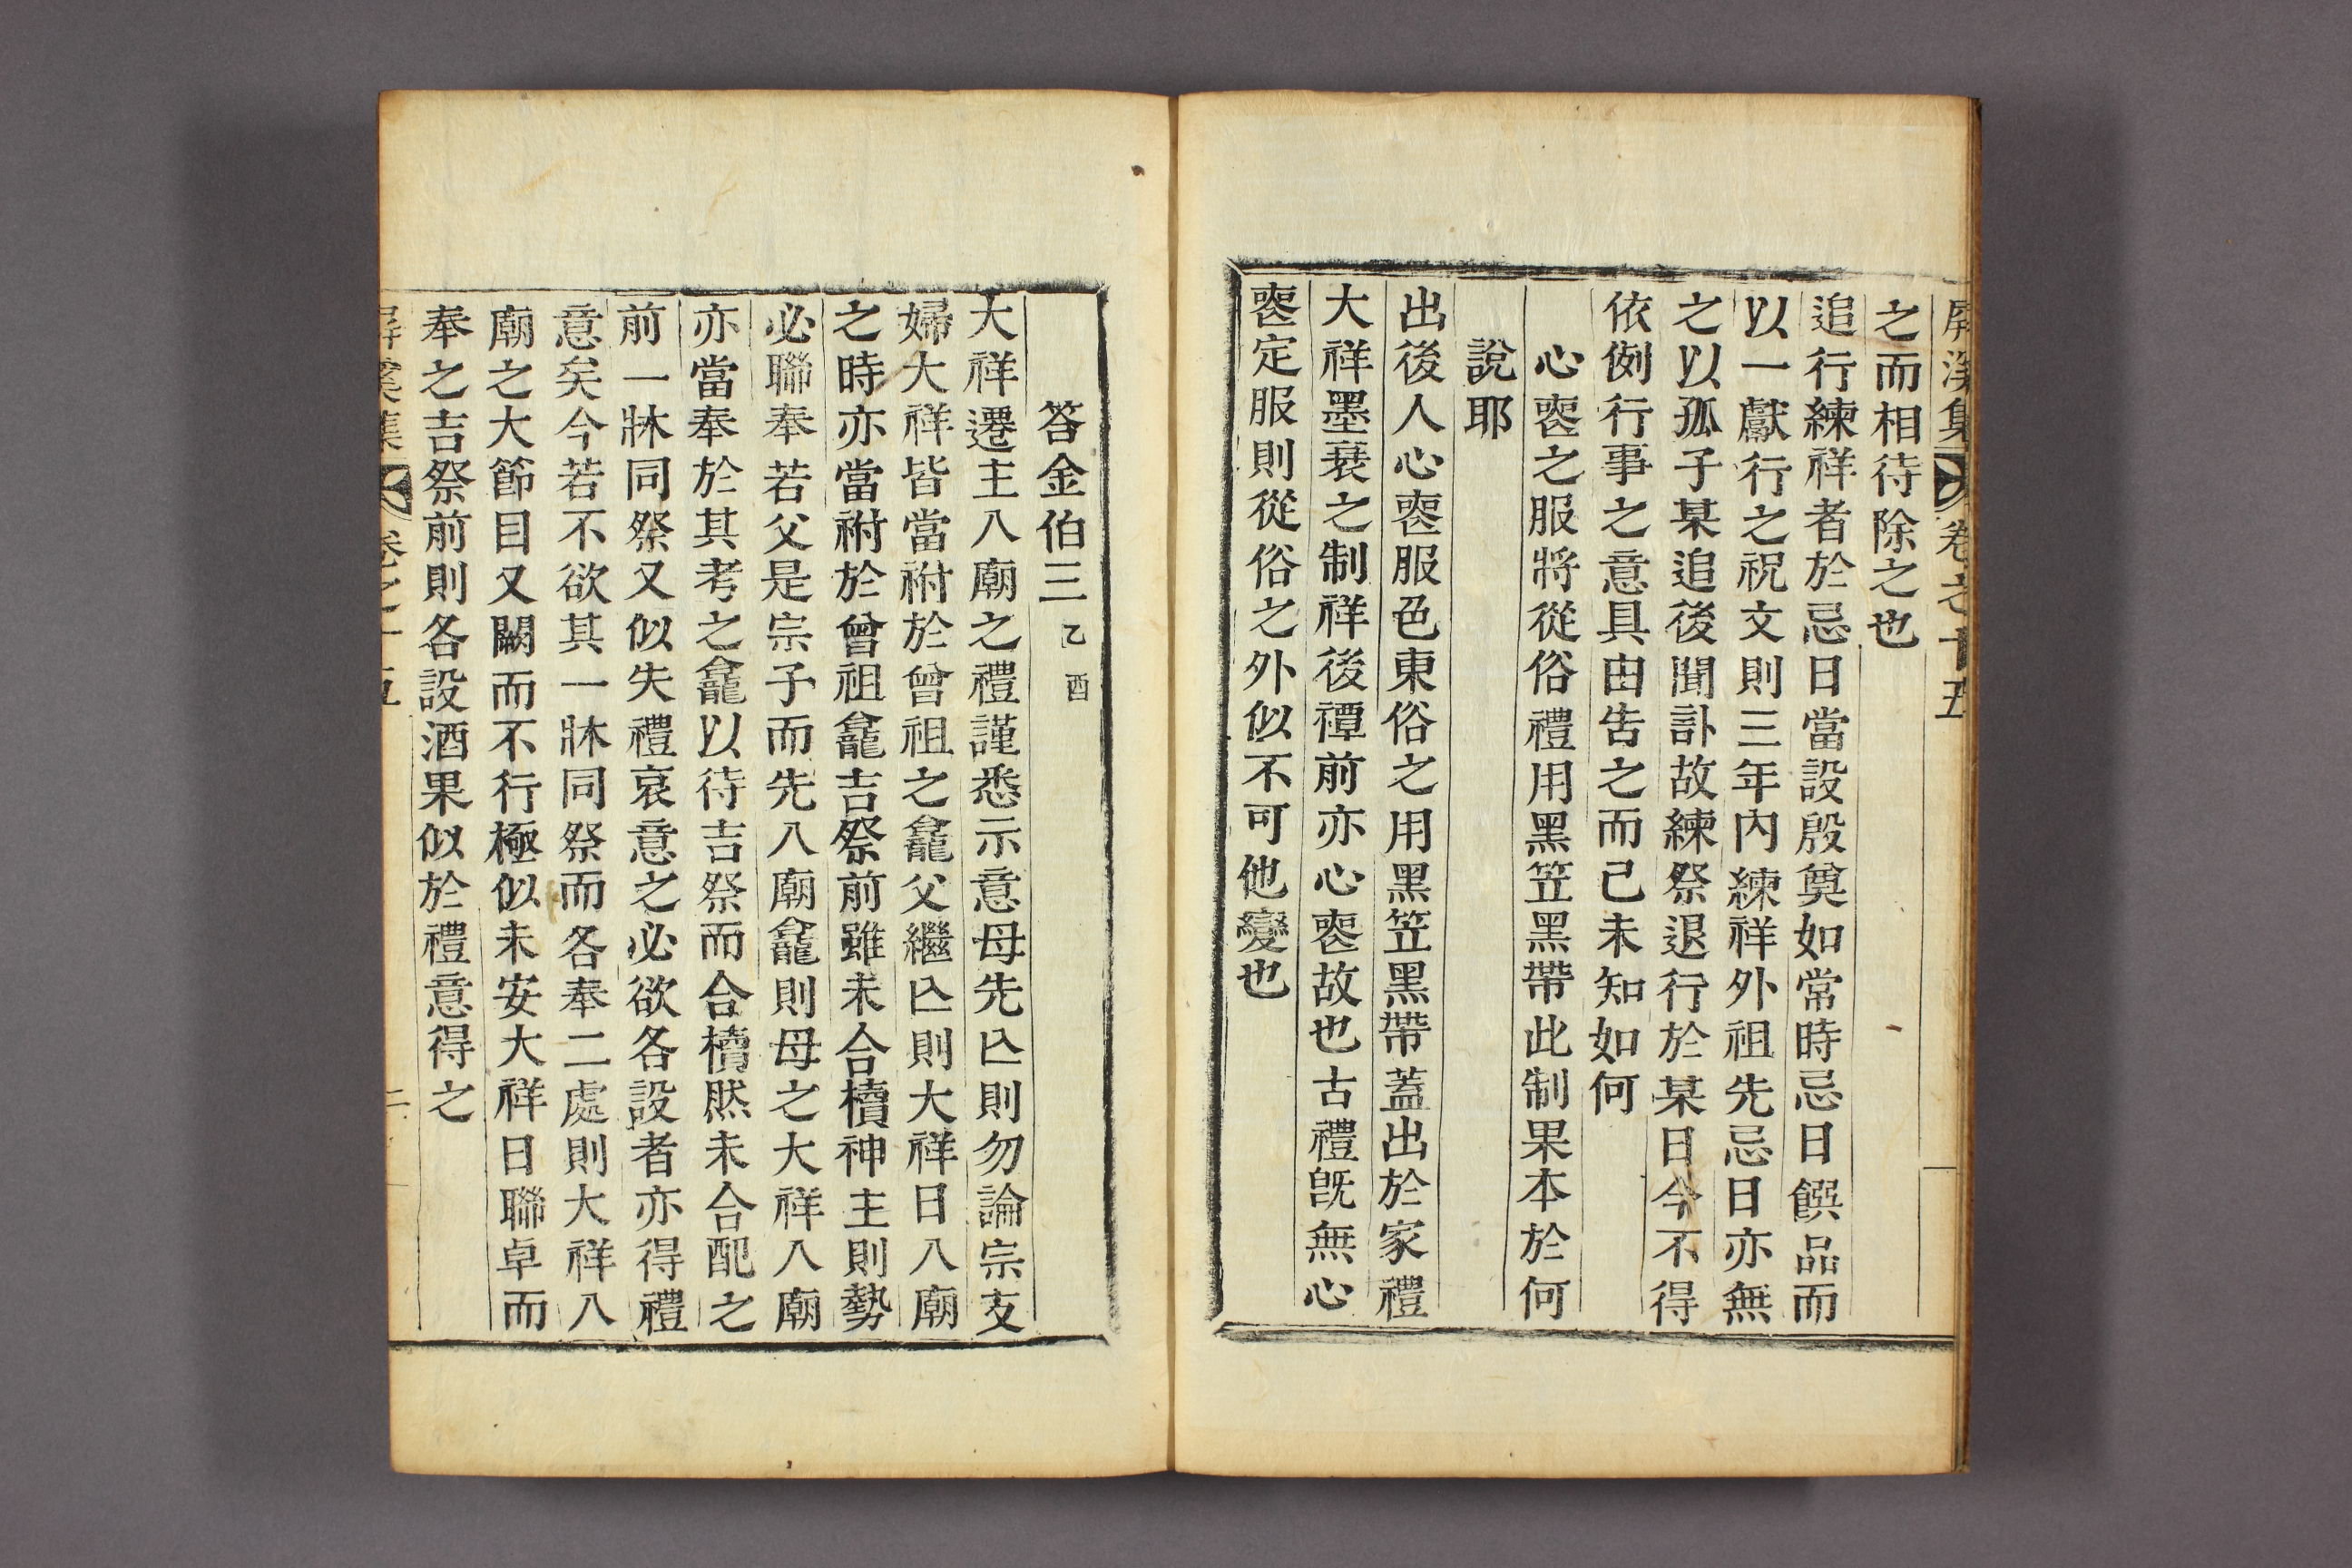 屛溪集 卷之十五
之而相待除之也
追行練祥者於忌日當設殷奠如常時忌日饌品而
以一獻行之祝文則三年內練祥外祖先忌日亦無
之以孤子某追後聞訃故練祭退行於某日今不得
依例行事之意具由告之而已未知如何
心喪之服將從俗禮用黑笠黑帶此制果本於何
說耶
出後人心喪服色東俗之用黑笠黑帶蓋出於家禮
大祥墨衰之制祥後禫前亦心喪故也古禮旣無心
喪定服則從俗之外似不可他變也
答金伯三 乙酉
大祥遷主入廟之禮謹悉示意母先亾則勿論宗支
婦大祥皆當祔於曾祖之龕父繼亾則大祥日入廟
之時亦當祔於曾祖龕吉祭前雖未合櫝神主則勢
必聯奉若父是宗子而先入廟龕則母之大祥入廟
亦當奉於其考之龕以待吉祭而合櫝然未合配之
前一牀同祭又似失禮哀意之必欲各設者亦得禮
意矣今若不欲其一牀同祭而各奉二處則大祥入
廟之大節目又闕而不行極似未安大祥日聯卓而
奉之吉祭前則各設酒果似於禮意得之
屛溪集 卷之十五 二